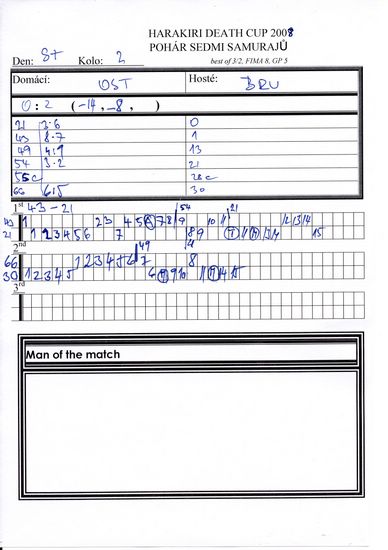 HARAKIRI DEATH CUP 2008
POHÁR SEDMI SAMURAJŮ
Den: St Kolo: 2 best of 3/2, FIMA 8, GP 5
Domácí: OST Hosté: BRU
0 : 2 (-14, -8, )
21 3·6 0
43 8·7 1
49 4:9 13
54 3·2 21
55c 28c
66 6:5 30
1st 43 - 21
54 21
43 1 2 3 4 5 6 7 8 9 10 11 12 13 14
21 1 2 3 4 5 6 7 8 9 13 14 15
2nd 49
66 1 2 3 4 5 6 7 8
30 1 2 3 4 5 6 9 10 11 14 15
3rd
Man of the match